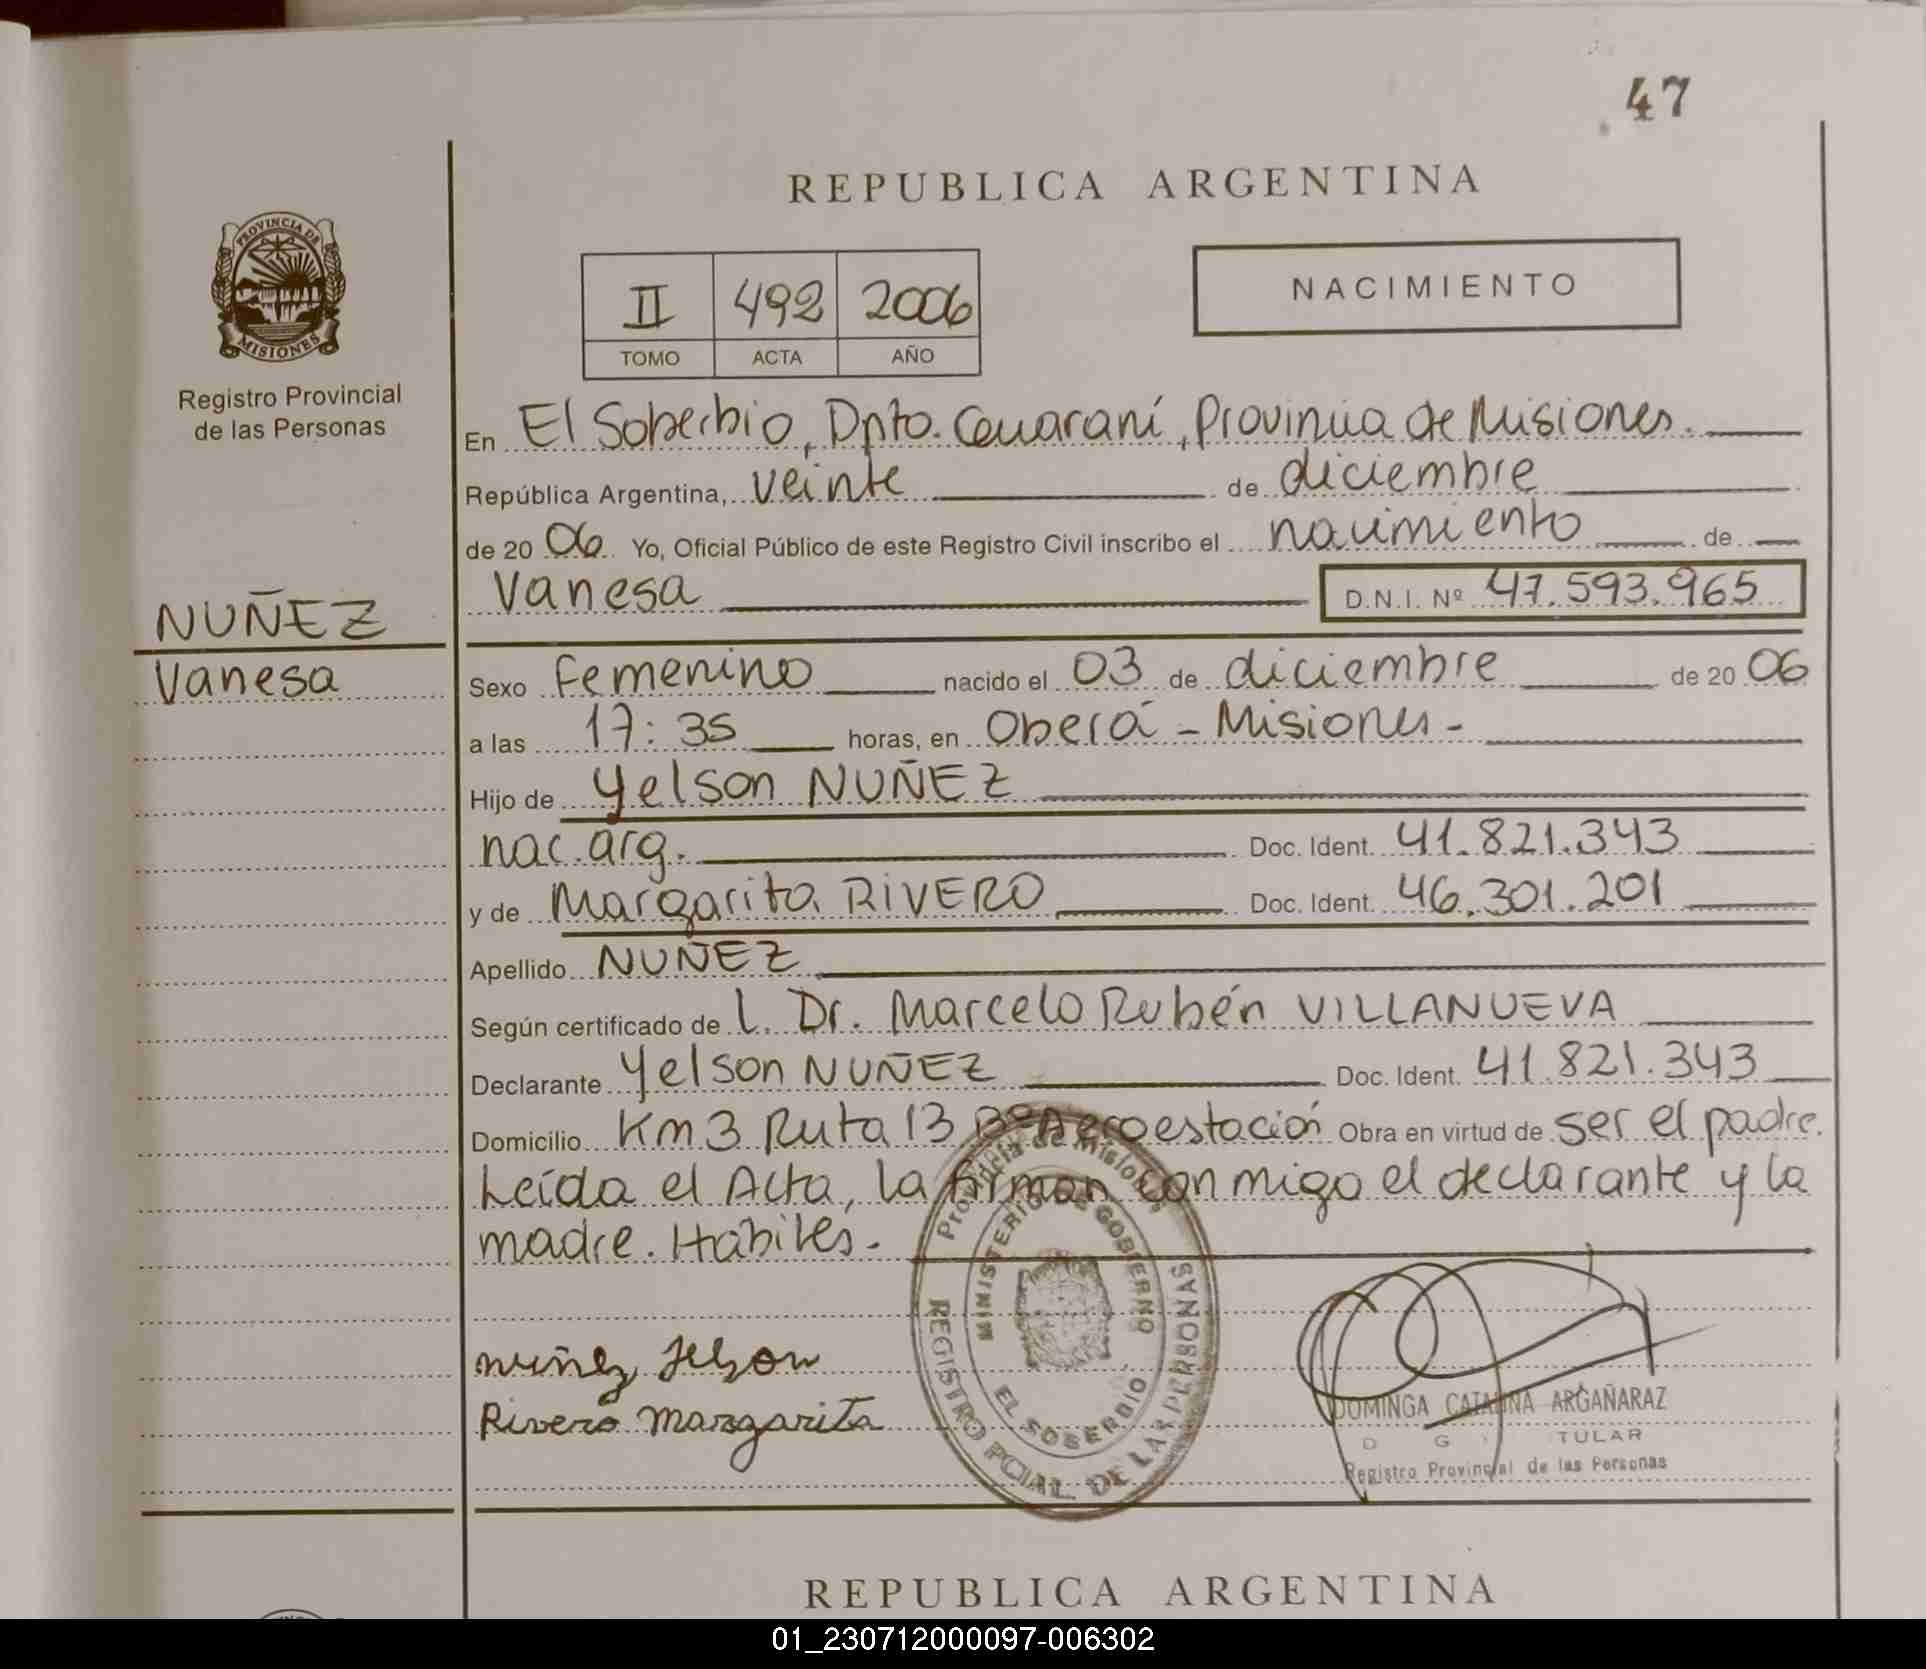 47
REPUBLICA ARGENTINA
PROVINCIA DE
MISIONES
Registro Provincial
de las Personas
II 492 2006
TOMO ACTA AÑO
NACIMIENTO
En El Soberbio, Dpto. Guaraní, Provincia de Misiones.
República Argentina, veinte de diciembre
de 20 06 Yo, Oficial Público de este Registro Civil inscribo el nacimiento de
Vanesa D.N.I. Nº 47.593.965
NUÑEZ
Vanesa
Sexo Femenino nacido el 03 de diciembre de 20 06
a las 17:35 horas, en Oberá - Misiones -
Hijo de Yelson NUÑEZ
nac. arg. Doc. Ident. 41.821.343
y de Margarita RIVERO Doc. Ident. 46.301.201
Apellido NUÑEZ
Según certificado de l. Dr. Marcelo Rubén VILLANUEVA
Declarante Yelson NUÑEZ Doc. Ident. 41.821.343
Domicilio Km 3 Ruta 13 Bº Aeroestación Obra en virtud de ser el padre.
Leída el Acta, la firman conmigo el declarante y la
madre. Hábiles.-
Provincia de Misiones
MINISTERIO DE GOBIERNO
EL SOBERBIO
REGISTRO PCIAL. DE LAS PERSONAS
nuñez Yelson
Rivero margarita
DOMINGA CATALINA ARGAÑARAZ
TULAR
Registro Provincial de las Personas
REPUBLICA ARGENTINA
01_230712000097-006302